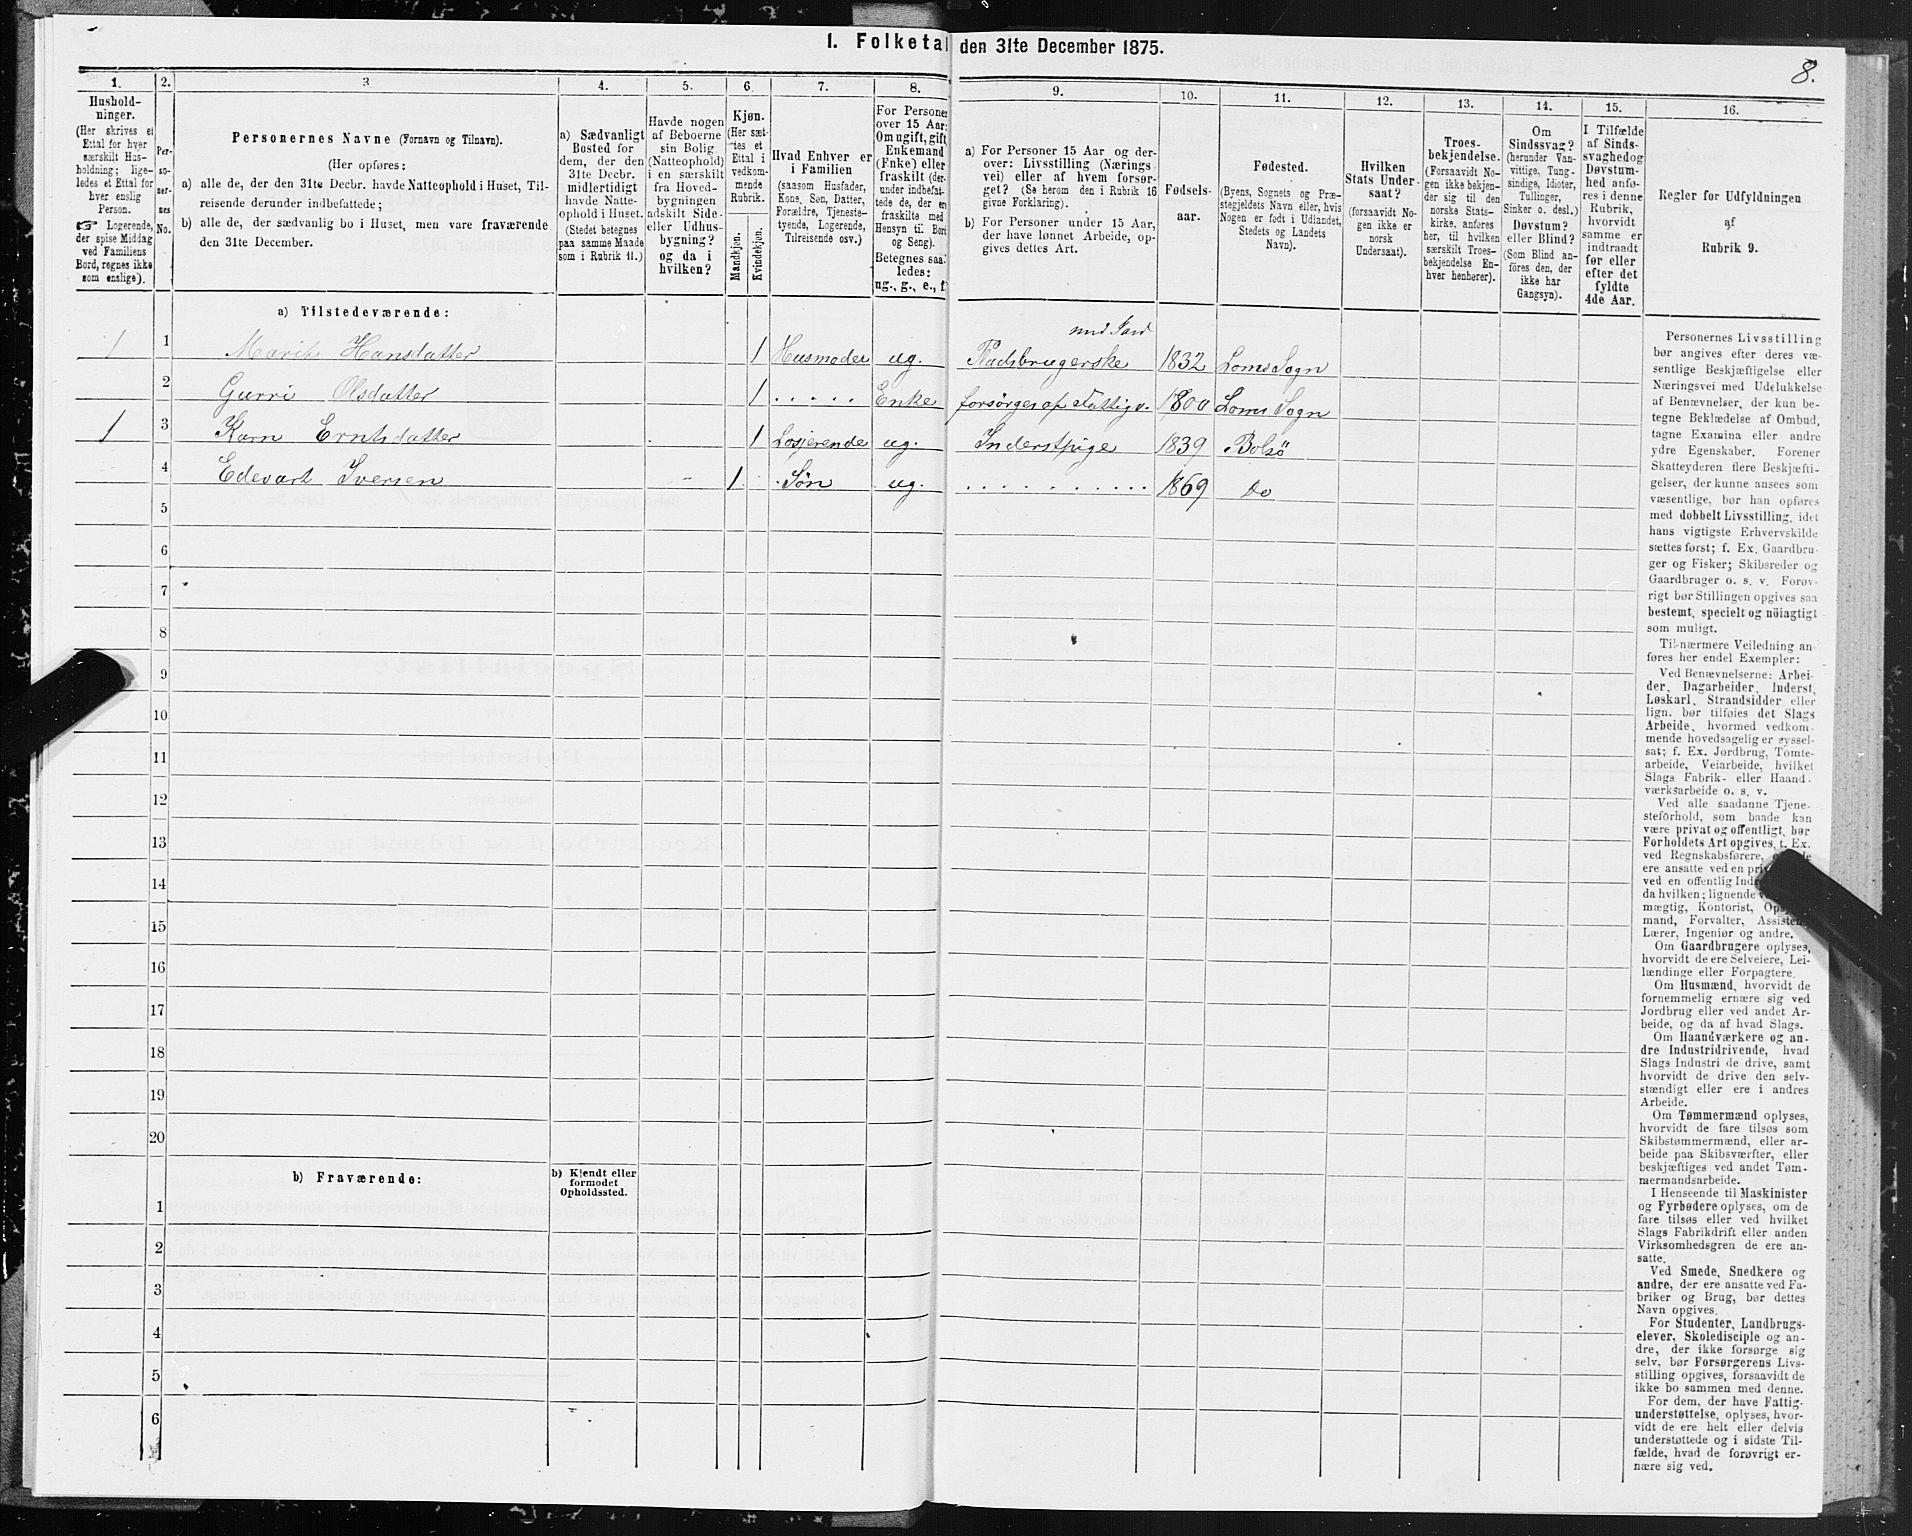 1. Folketal den 31te December 1875.
8.
1.
Hushold-
ninger.
(Her skrives et
Ettal for hver
særskilt Hus-
holdning; lige-
ledes et Ettal for
hver enslig
Person.
☞ Logerende,
der spise Middag
ved Familiens
Bord, regnes ikke
som enslige).
2.
Per-
so-
ner-
nes
No.
3
Personernes Navne (Fornavn og Tilnavn).
(Her opføres:
a) alle de, der den 31te Decbr. havde Natteophold i Huset, Til-
reisende derunder indbefattede;
b) alle de, der sædvanlig bo i Huset, men vare fraværende
den 31te December.
4.
a) Sædvanligt
Bosted for
dem, der den
31te Decbr.
midlertidigt
havde Natte-
ophold i Huset.
(Stedet betegnes
paa samme Maade
som i Rubrik 11.)
5.
Havde nogen
af Beboerne
sin Bolig
(Natteophold)
i en særskilt
fra Hoved-
bygningen
adskilt Side-
eller Udhus-
bygning?
og da i
hvilken?
6.
Kjøn.
(Her sæt-
tes et
Ettal i
vedkom-
mende
Rubrik.
Mandkjøn.
Kvindekjøn.
7.
Hvad Enhver er
i Familien
(saasom Husfader,
Kone, Søn, Datter,
Forældre, Tjeneste-
tyende, Logerende,
Tilreisende osv.)
8.
For Personer
over 15 Aar:
Om ugift, gift,
Enkemand
(Enke) eller
fraskilt (der-
under indbefat-
tede de, der ere
fraskilte med
Hensyn til Bord
og Seng).
Betegnes saa-
ledes:
ug., g., e., f.
9.
a) For Personer 15 Aar og der-
over: Livsstilling (Nærings-
vei) eller af hvem forsør-
get? (Se herom den i Rubrik 16
givne Forklaring).
b) For Personer under 15 Aar,
der have lønnet Arbeide, op-
gives dettes Art.
10.
Fødsels-
aar.
11.
Fødested.
(Byens, Sognets og Præ-
stegjeldets Navn eller, hvis
Nogen er født i Udlandet,
Stedets og Landets
Navn).
12.
Hvilken
Stats Under-
saat?
(forsaavidt No-
gen ikke er
norsk
Undersaat).
13.
Troes-
bekjendelse.
(Forsaavidt No-
gen ikke bekjen-
der sig til den
norske Stats-
kirke, anføres
her, til hvilken
særskilt Troes-
bekjendelse En-
hver henhører).
14.
Om
Sindssvag?
(herunder Van-
vittige, Tung-
sindige, Idioter,
Tullinger,
Sinker o. desl.)
Døvstum?
eller Blind?
(Som Blind an-
føres den, der
ikke har
Gangsyn).
15.
I Tilfælde
af Sinds-
svaghed og
Døvstum-
hed anfø-
res i denne
Rubrik,
hvorvidt
samme er
indtraadt
før eller
efter det
fyldte
4de Aar.
16.
Regler for Udfyldningen
af
Rubrik 9.
a) Tilstedeværende:
med Jord
1 1 Marit Hansdatter 1 Husmoder ug. Pladsbrugerske 1832 Loms Sogn
2 Gurri Olsdatter 1 . . . . . Enke forsørges af Fattigv. 1800 Loms Sogn
1 3 Karn Erntsdatter 1 Losjerende ug. Inderstpige 1839 Bolsö
4 Edevart Iversen 1 Søn ug. . . . . . . . . . . 1869 Do
5
6
7
8
9
10
11
12
13
14
15
16
17
18
19
20
b) Fraværende:
b) Kjendt eller
formodet
Opholdssted.
1
2
3
4
5
6
Personernes Livsstilling
bør angives efter deres væ-
sentlige Beskjæftigelse eller
Næringsvei med Udelukkelse
af Benævnelser, der kun be-
tegne Beklædelse af Ombud,
tagne Examina eller andre
ydre Egenskaber. Forener
Skatteyderen flere Beskjæfti-
gelser, der kunne ansees som
væsentlige, bør han opføres
med dobbelt Livsstilling, idet
hans vigtigste Erhvervskilde
sættes først; f. Ex. Gaardbru-
ger og Fisker; Skibsreder og
Gaardbruger o. s. v. Forøv-
rigt bør Stillingen opgives saa
bestemt, specielt og nöiagtigt
som muligt.
Til nærmere Veiledning an-
føres her endel Exempler:
Ved Benævnelserne: Arbei-
der, Dagarbeider, Inderst,
Løskarl, Strandsidder eller
lign. bør tilføies det Slags
Arbeide, hvormed vedkom-
mende hovedsagelig er syssel-
sat; f. Ex. Jordbrug, Tomte-
arbeide, Veiarbeide, hvilket
Slags Fabrik- eller Haand-
værksarbeide o. s. v.
Ved alle saadanne Tjene-
steforhold, som baade kan
være privat og offentligt, bør
Forholdets Art opgives, f. Ex.
ved Regnskabsførere,
ere ansatte ved en pri
ved en offentlig Ind
da hvilken; lignende
mægtig, Kontorist, Ops
mand, Forvalter, Assistent,
Lærer, Ingeniør og andre.
Om Gaardbrugere oplyses,
hvorvidt de ere Selveiere, Lei-
lændinge eller Forpagtere.
Om Husmænd, hvorvidt de
fornemmelig ernære sig ved
Jordbrug eller ved andet Ar-
beide, og da af hvad Slags.
Om Haandværkere og an-
dre Industridrivende, hvad
Slags Industri de drive, samt
hvorvidt de drive den selv-
stændigt eller ere i andres
Arbeide.
Om Tømmermænd oplyses,
hvorvidt de fare tilsøs som
Skibstømmermænd, eller ar-
beide paa Skibsværfter, eller
beskjæftiges ved andet Tøm-
mermandsarbeide.
I Henseende til Maskinister
og Fyrbødere oplyses, om de
fare tilsøs eller ved hvilket
Slags Fabrikdrift eller anden
Virksomhedsgren de ere an-
satte.
Ved Smede, Snedkere og
andre, der ere ansatte ved Fa-
briker og Brug, bør dettes
Navn opgives.
For Studenter, Landbrugs-
elever, Skoledisciple og an-
dre, der ikke forsørge sig
selv, bør Forsørgerens Livs-
stilling opgives, forsaavidt de
ikke bo sammen med denne.
For dem, der have Fattig-
understøttelse, oplyses, hvor-
vidt de ere helt eller delvis
understøttede og i sidste Til-
fælde, hvad de forøvrigt er-
nære sig ved.